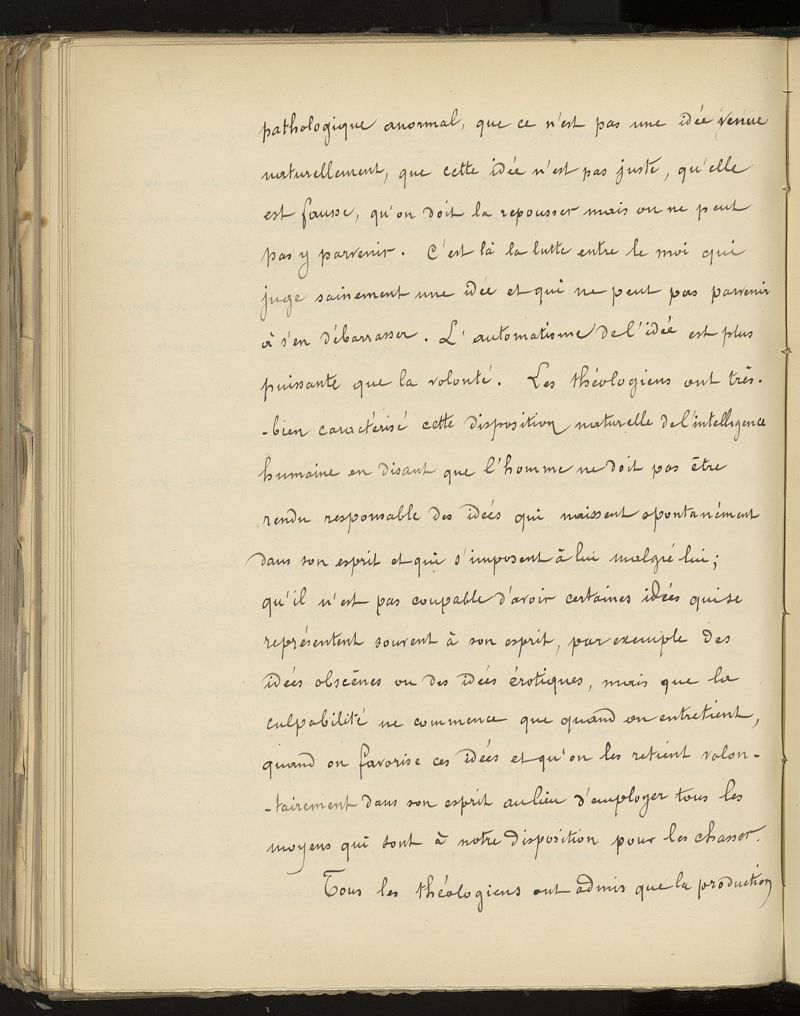 pathologique anormal, que ce n'est pas une idée venue
naturellement, que cette idée n'est pas juste, qu'elle
est fausse, qu'on doit la repousser mais on ne peut
pas y parvenir. C'est là la lutte entre le moi qui
juge sainement une idée et qui ne peut pas parvenir
à s'en débarrasser. L'automatisme de l'idée est plus
puissante que la volonté. Les théologiens ont très-
-bien caractérisé cette disposition naturelle de l'intelligence
humaine en disant que l'homme ne doit pas être
rendu responsable des idées qui naissent spontanément
dans son esprit et qui s'imposent à lui malgré lui;
qu'il n'est pas coupable d'avoir certaines idées qui se
représentent souvent à son esprit, par exemple des
idées obscènes ou des idées érotiques, mais que la
culpabilité ne commence que quand on entretient,
quand on favorise ces idées et qu'on les retient volon-
-tairement dans son esprit au lieu d'employer tous les
moyens qui sont à notre disposition pour les chasser.
Tous les théologiens ont admis que la production